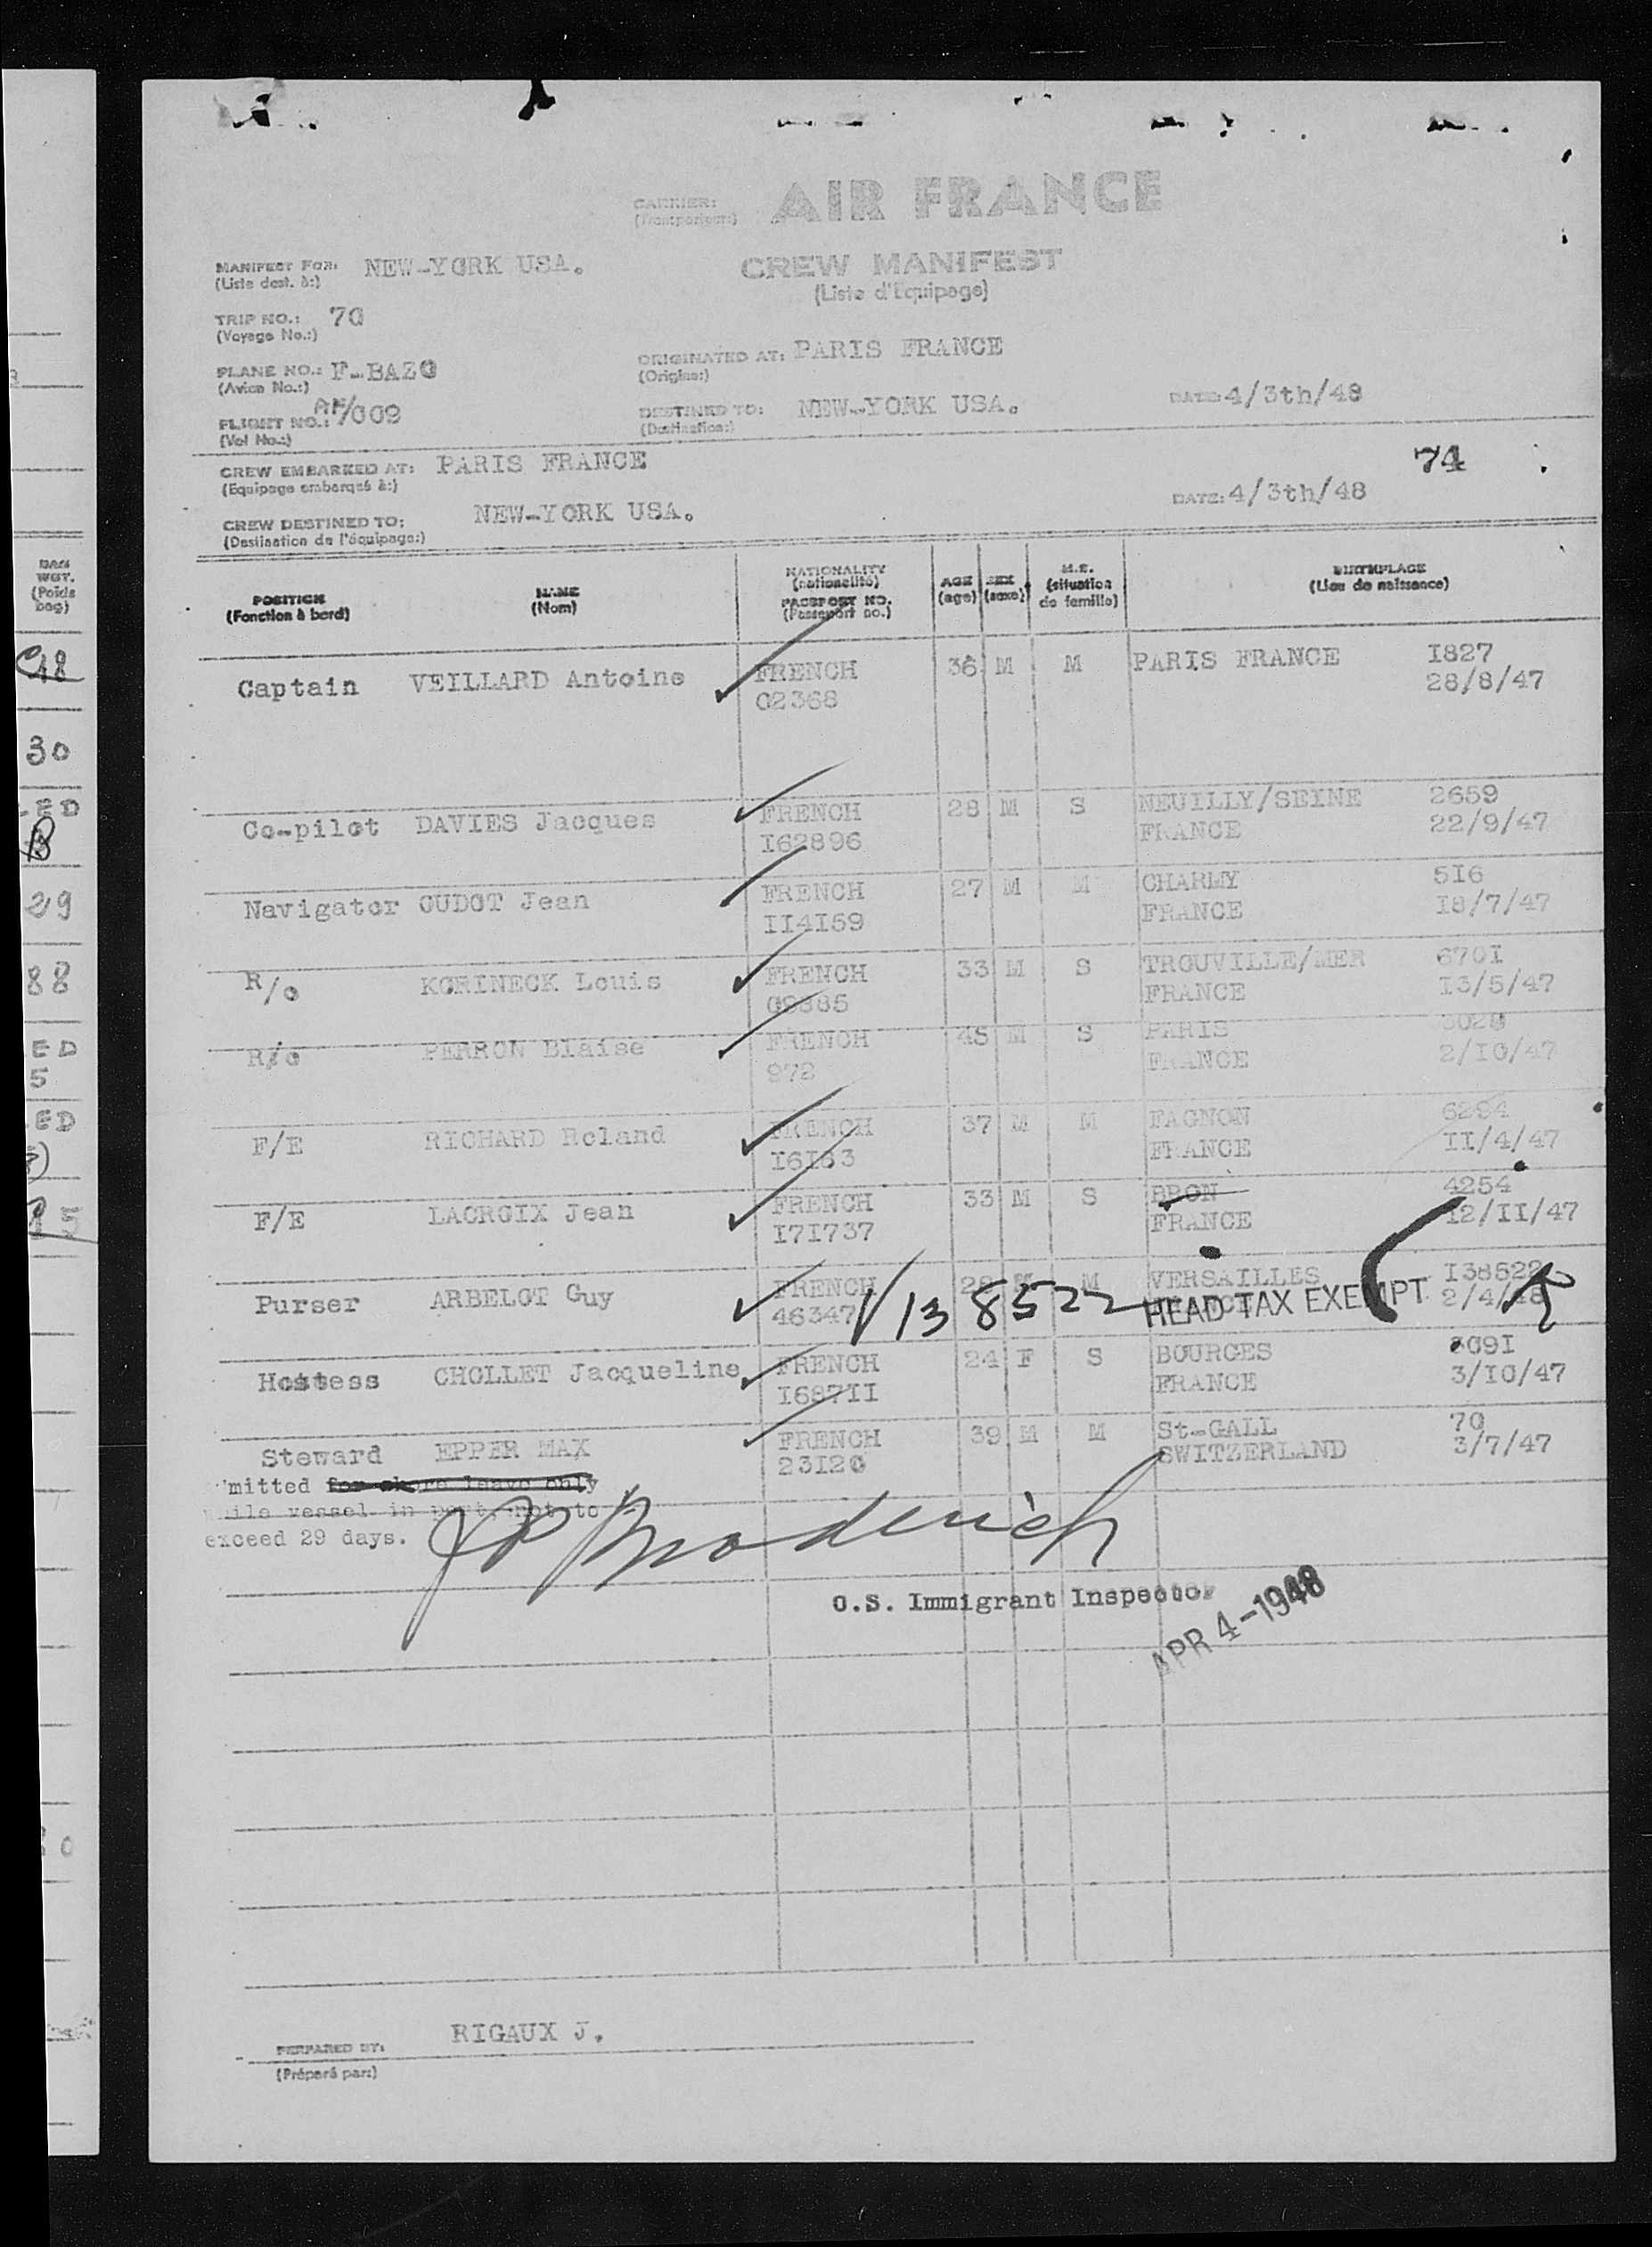 CARRIER: AIR FRANCE
(Transporteur:)
MANIFEST FOR: NEW-YORK USA. CREW MANIFEST
(Liste dest. à:) (Liste d'Equipage)
TRIP NO.: 70
(Voyage No.:)
PLANE NO.: F-BAZO ORIGINATED AT: PARIS FRANCE
(Avion No.:) (Origine:)
FLIGHT NO.: AF/009 DESTINED TO: NEW-YORK USA. DATE: 4/3th/48
(Vol No.:) (Destination:)
CREW EMBARKED AT: PARIS FRANCE 74
(Equipage embarqué à:)
CREW DESTINED TO: NEW-YORK USA. DATE: 4/3th/48
(Destination de l'équipage:)
POSITION NAME NATIONALITY AGE SEX M.E. BIRTHPLACE
(Fonction à bord) (Nom) (nationalité) (age) (sexe) (situation de famille) (Lieu de naissance)
PASSPORT NO.
(Passeport no.)
Captain VEILLARD Antoine FRENCH 36 M M PARIS FRANCE I827
02368 28/8/47
Co-pilot DAVIES Jacques FRENCH 28 M S NEUILLY/SEINE 2659
I62896 FRANCE 22/9/47
Navigator OUDOT Jean FRENCH 27 M M CHARMY 5I6
II4I59 FRANCE I8/7/47
R/o KORINECK Louis FRENCH 33 M S TROUVILLE/MER 670I
09885 FRANCE I3/5/47
R/o PERRON Blaise FRENCH 45 M S PARIS
972 FRANCE 2/IO/47
F/E RICHARD Roland FRENCH 37 M M FAGNON 6294
I6I63 FRANCE II/4/47
F/E LACROIX Jean FRENCH 33 M S BRON 4254
I7I737 FRANCE I2/II/47
Purser ARBELOT Guy FRENCH 28 M M VERSAILLES I38522
46347 138522 HEAD TAX EXEMPT 2/4/48
Hostess CHOLLET Jacqueline FRENCH 24 F S BOURGES
I687II FRANCE 3/IO/47
Steward EPPER MAX FRENCH 39 M M St-GALL 70
23I20 SWITZERLAND 3/7/47
mitted for shore leave only
while vessel in port, not to
exceed 29 days.
JP Broderick
U.S. Immigrant Inspector
APR 4-1948
PERPARED BY: RIGAUX J.
(Préparé par:)
BAG
WGT.
(Poids
bag)
48
30
ED
29
88
ED
5
ED
15